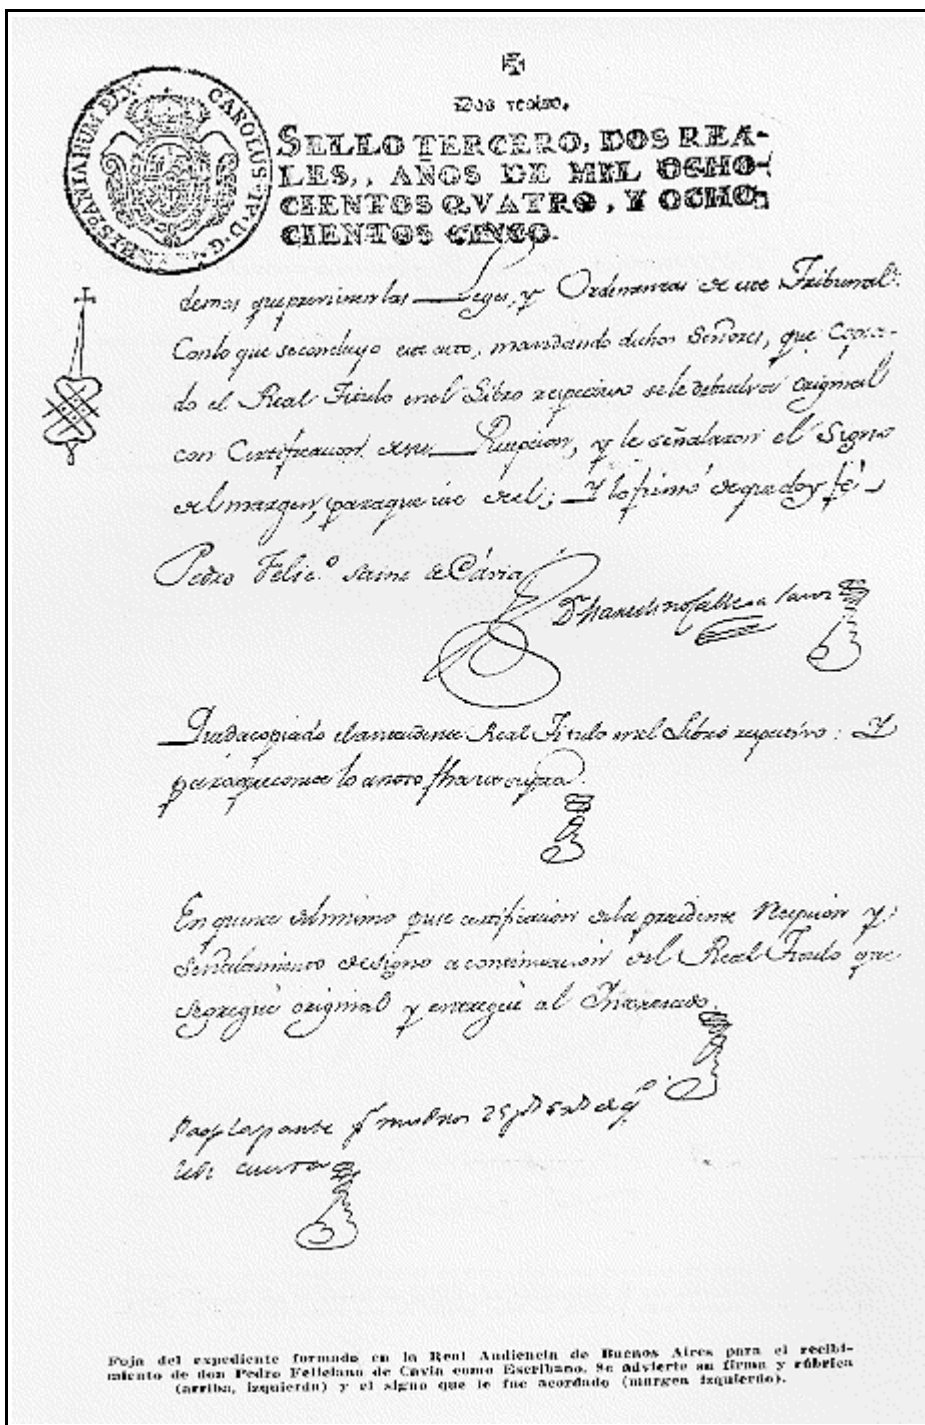 Dos reales.
CAROLUS IV D. G. HISPANIARUM REX
SELLO TERCERO, DOS REA-
LES,, AÑOS DE MIL OCHO-
CIENTOS QVATRO, Y OCHO-
CIENTOS CINCO.
demas que previenen las Leyes, y Ordenanzas de este Tribunal:
Con lo que se concluyo este acto, mandando dichos Señores, que Copia-
do el Real Titulo en el Libro respectivo se le debuelva original
con Certificacion de su Recepcion, y le señalaron el Signo
del margen, para que use de el; Y lo firmó de que doy fé
Pedro Felic.º Sainz de Cávia
Queda copiado el antecedente Real Titulo en el Libro respectivo: Y
para que conste lo anoto fha ut supra.
En quince del mismo puse certificacion de la precedente Recepcion y
señalamiento de signo a continuacion del Real Titulo que
segregué original y entregué al Interesado.
Foja del expediente formado en la Real Audiencia de Buenos Aires para el recibi-
miento de don Pedro Feliciano de Cavia como Escribano. Se advierte su firma y rúbrica
(arriba, izquierda) y el signo que le fue acordado (margen izquierdo).